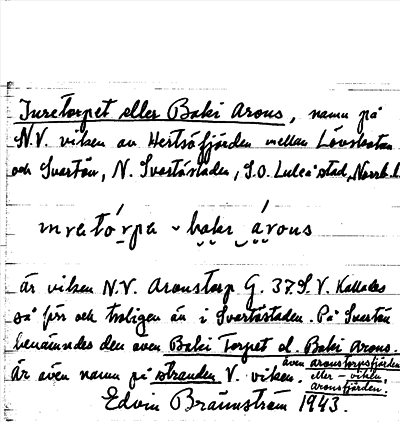 Inretorpet eller Baki Arons, namn på
N.V. viken av Hertsöfjärden mellan Lövskatan
och Svartön, N. Svartöstaden, S.O. Luleå stad, Norrb. l.
inretórpa - baki árons
är viken N.V. Aronstorp G. 37. S.V. Kallades
så förr och troligen än i Svartöstaden. På Svartön
benämndes den även Baki Torpet el. Baki Arons.
även aronstorpsfjärden
Är även namn på stranden V. viken.
eller - viken,
aronsfjärden.
Edvin Brännström 1943.